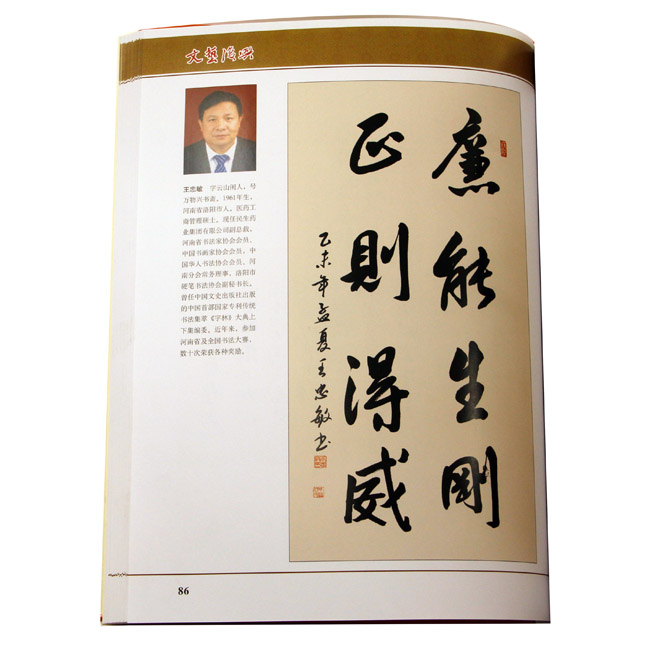 文藝復興
王忠敏 字云山闲人,号
万物兴书斋,1961年生,
河南省洛阳市人,医药工
商管理硕士,现任民生药
业集团有限公司副总裁,
河南省书法家协会会员,
中国书画家协会会员,中
国华人书法协会会员、河
南分会常务理事,洛阳市
硬笔书法协会副秘书长。
曾任中国文史出版社出版
的中国首部国家专利传统
书法集萃《字林》大典上
下集编委。近年来,参加
河南省及全国书法大赛,
数十次荣获各种奖励。
廉能生剛
正則得威
乙未年孟夏王忠敏书
86